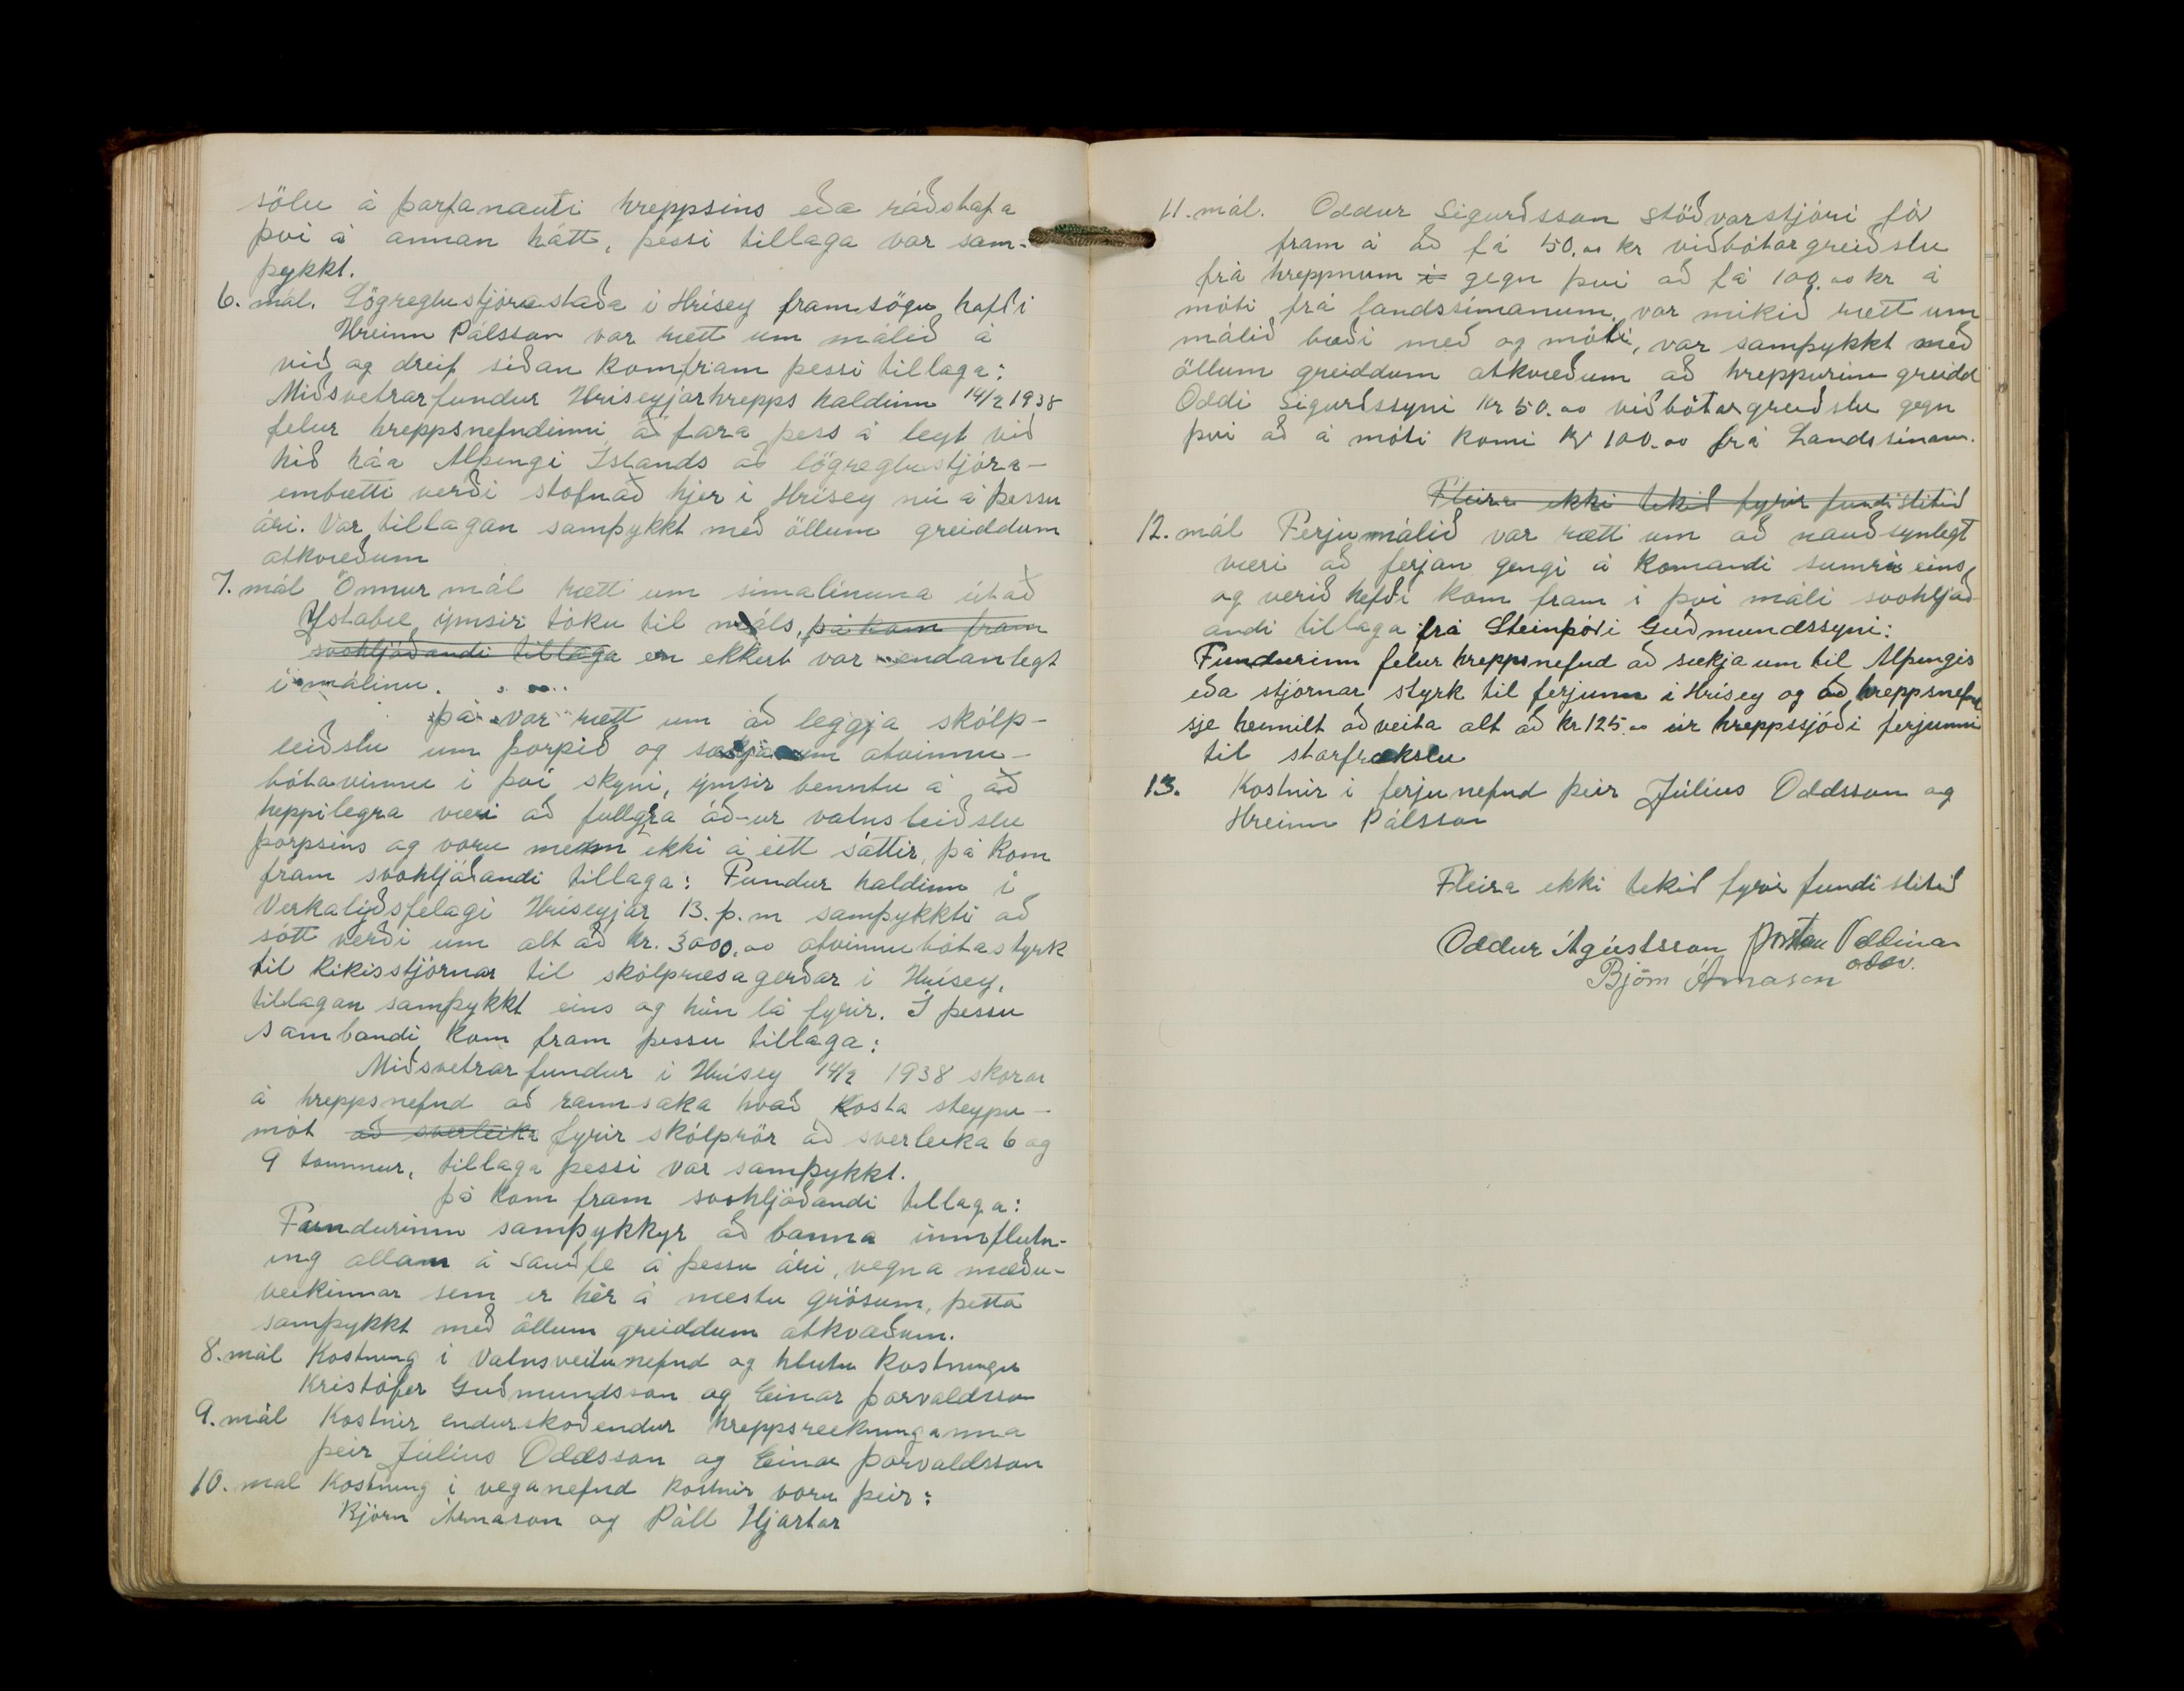 sölu á þarfanauti hreppsins eða ráðstafa
því á annan hátt, þessi tillaga var sam-
þykkt.
6. mál. Lögreglustjórastaða í Hrísey framsögu hafði
Hreinn Pálsson var rætt um málið á
við og dreif síðan kom fram þessi tillaga:
Miðsvetrarfundur Hríseyjarhrepps haldinn 14/2 1938
felur hreppsnefndinni að fara þess á leyt við
hið háa Alþengi Íslands að lögreglustjóra-
embætti verði stofnað hjer í Hrísey nú á þessu
ári. Var tillagan samþykkt með öllum greiddum
atkvæðum
7. mál Önnur mál rætt um símalínuna útað
Ystabæ ýmsir tóku til máls, þá kom fram
svohljóðandi tillaga en ekkert var endanlegt
í málinu.
þá var rætt um að leggja skólp-
leiðslu um þorpið og sækja um atvinnu-
bótavinnu í því skyni, ýmsir benntu á að
heppilegra væri að fullgera áð-ur vatnsleiðslu
þorpsins og voru menn ekki á eitt sáttir, þá kom
fram svohljóðandi tillaga: Fundur haldinn í
Verkalýðsfelagi Hríseyjar 13. þ.m samþykkti að
sótt verði um alt að kr. 3000.00 atvinnubótastyrk
til Rikisstjórnar til skólpræsagerðar í Hrísey,
tillagan samþykkt eins og hún lá fyrir. Í þessu
sambandi kom fram þessu tillaga:
Miðsvetrarfundur í Hrísey 14/2 1938 skorar
á hreppsnefnd að rannsaka hvað kosta steypu-
mót að sverleika fyrir skólprör að sverleika 6 og
9 tommur, tillaga þessi var samþykkt.
þá kom fram svohljóðandi tillaga:
Fundurinn samþykkyr að banna innflutn-
ing allann á sauðfe á þessu ári, vegna mæðu-
veikinnar sem er hér á næstu grösum, þetta
samþykkt með öllum greiddum atkvæðum.
8. mál Kostning í Vatnsveitunefnd og hlutu kostningu
Kristófer Guðmundsson og Einar þorvaldsson
9. mál Kostnir endurskoðendur hreppsreekninganna
þeir Júlíus Oddsson og Einar þorvaldsson
10. mál Kostning í veganefnd kostnir voru þeir:
Björn Árnason og Páll Hjartar
11. mál. Oddur Sigurðsson stöðvarstjóri fór
fram á að fá 50.00 kr viðbótargreiðslu
frá hreppnum í gegn því að fá 100.00 kr á
móti frá landssímanum, var mikið rætt um
málið bæði með og móti, var samþykkt með
öllum greiddum atkvæðum að hreppurinn greidd
Oddi Sigurðssyni kr 50.00 viðbótargreiðslu gegn
því að á móti komi kr 100.00 frá Landssíman.
Fleira ekki tekið fyrir fundi slitið
12. mál Ferjumálið var rætt um að nauðsynlegt
væri að ferjan gengi á komandi sumri eins
og verið hefði kom fram í því máli svohljóð-
andi tillaga frá Steinþóri Guðmundssyni:
Fundurinn felur hreppsnefnd að sækja um til Alþengis
eða stjórnar styrk til ferjunn í Hrísey og að hreppsnefnd
sje heimilt að veita alt að kr 125.00 úr hreppssjóði ferjunni
til starfrækslu
13. Kostnir í ferjunefnd þeir Júlíus Oddsson og
Hreinn Pálsson
Fleira ekki tekið fyrir fundi slitið
Oddur Ágústsson
Björn Árnason